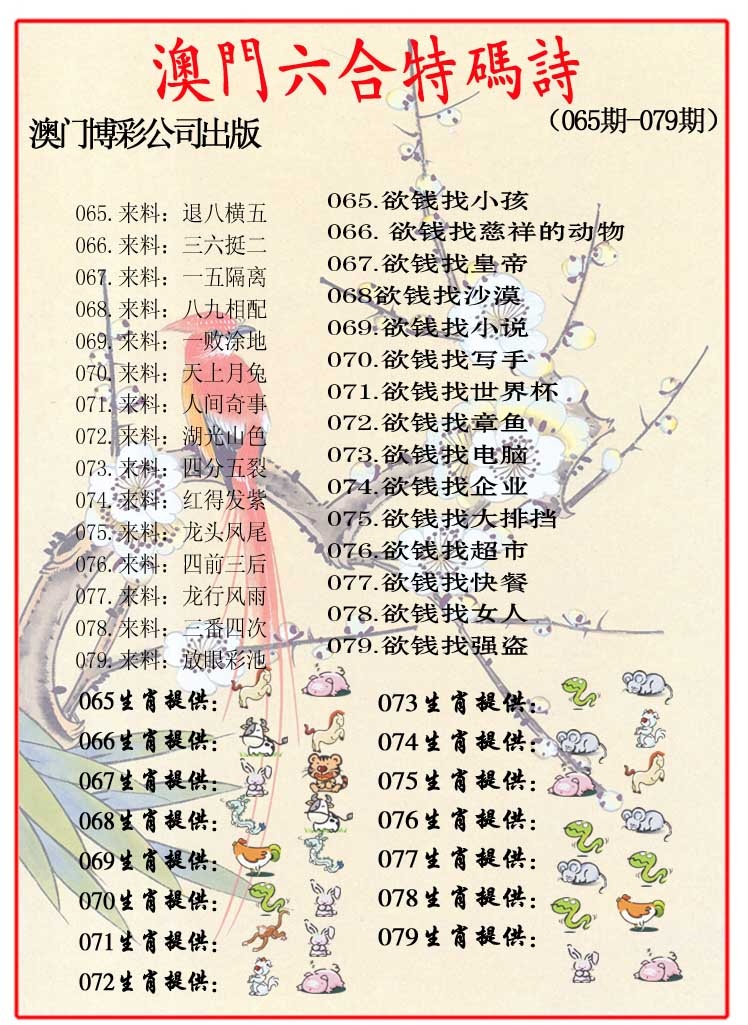 澳門六合特碼詩
澳门博彩公司出版
（065期-079期）
065.来料：退八横五
066.来料：三六挺二
067.来料：一五隔离
068.来料：八九相配
069.来料：一败涂地
070.来料：天上月兔
071.来料：人间奇事
072.来料：湖光山色
073.来料：四分五裂
074.来料：红得发紫
075.来料：龙头风尾
076.来料：四前三后
077.来料：龙行风雨
078.来料：三番四次
079.来料：放眼彩池
065.欲钱找小孩
066. 欲钱找慈祥的动物
067.欲钱找皇帝
068欲钱找沙漠
069.欲钱找小说
070.欲钱找写手
071.欲钱找世界杯
072.欲钱找章鱼
073.欲钱找电脑
074.欲钱找企业
075.欲钱找大排挡
076.欲钱找超市
077.欲钱找快餐
078.欲钱找女人
079.欲钱找强盗
065生肖提供：
066生肖提供：
067生肖提供：
068生肖提供：
069生肖提供：
070生肖提供：
071生肖提供：
072生肖提供：
073生肖提供：
074生肖提供：
075生肖提供：
076生肖提供：
077生肖提供：
078生肖提供：
079生肖提供：